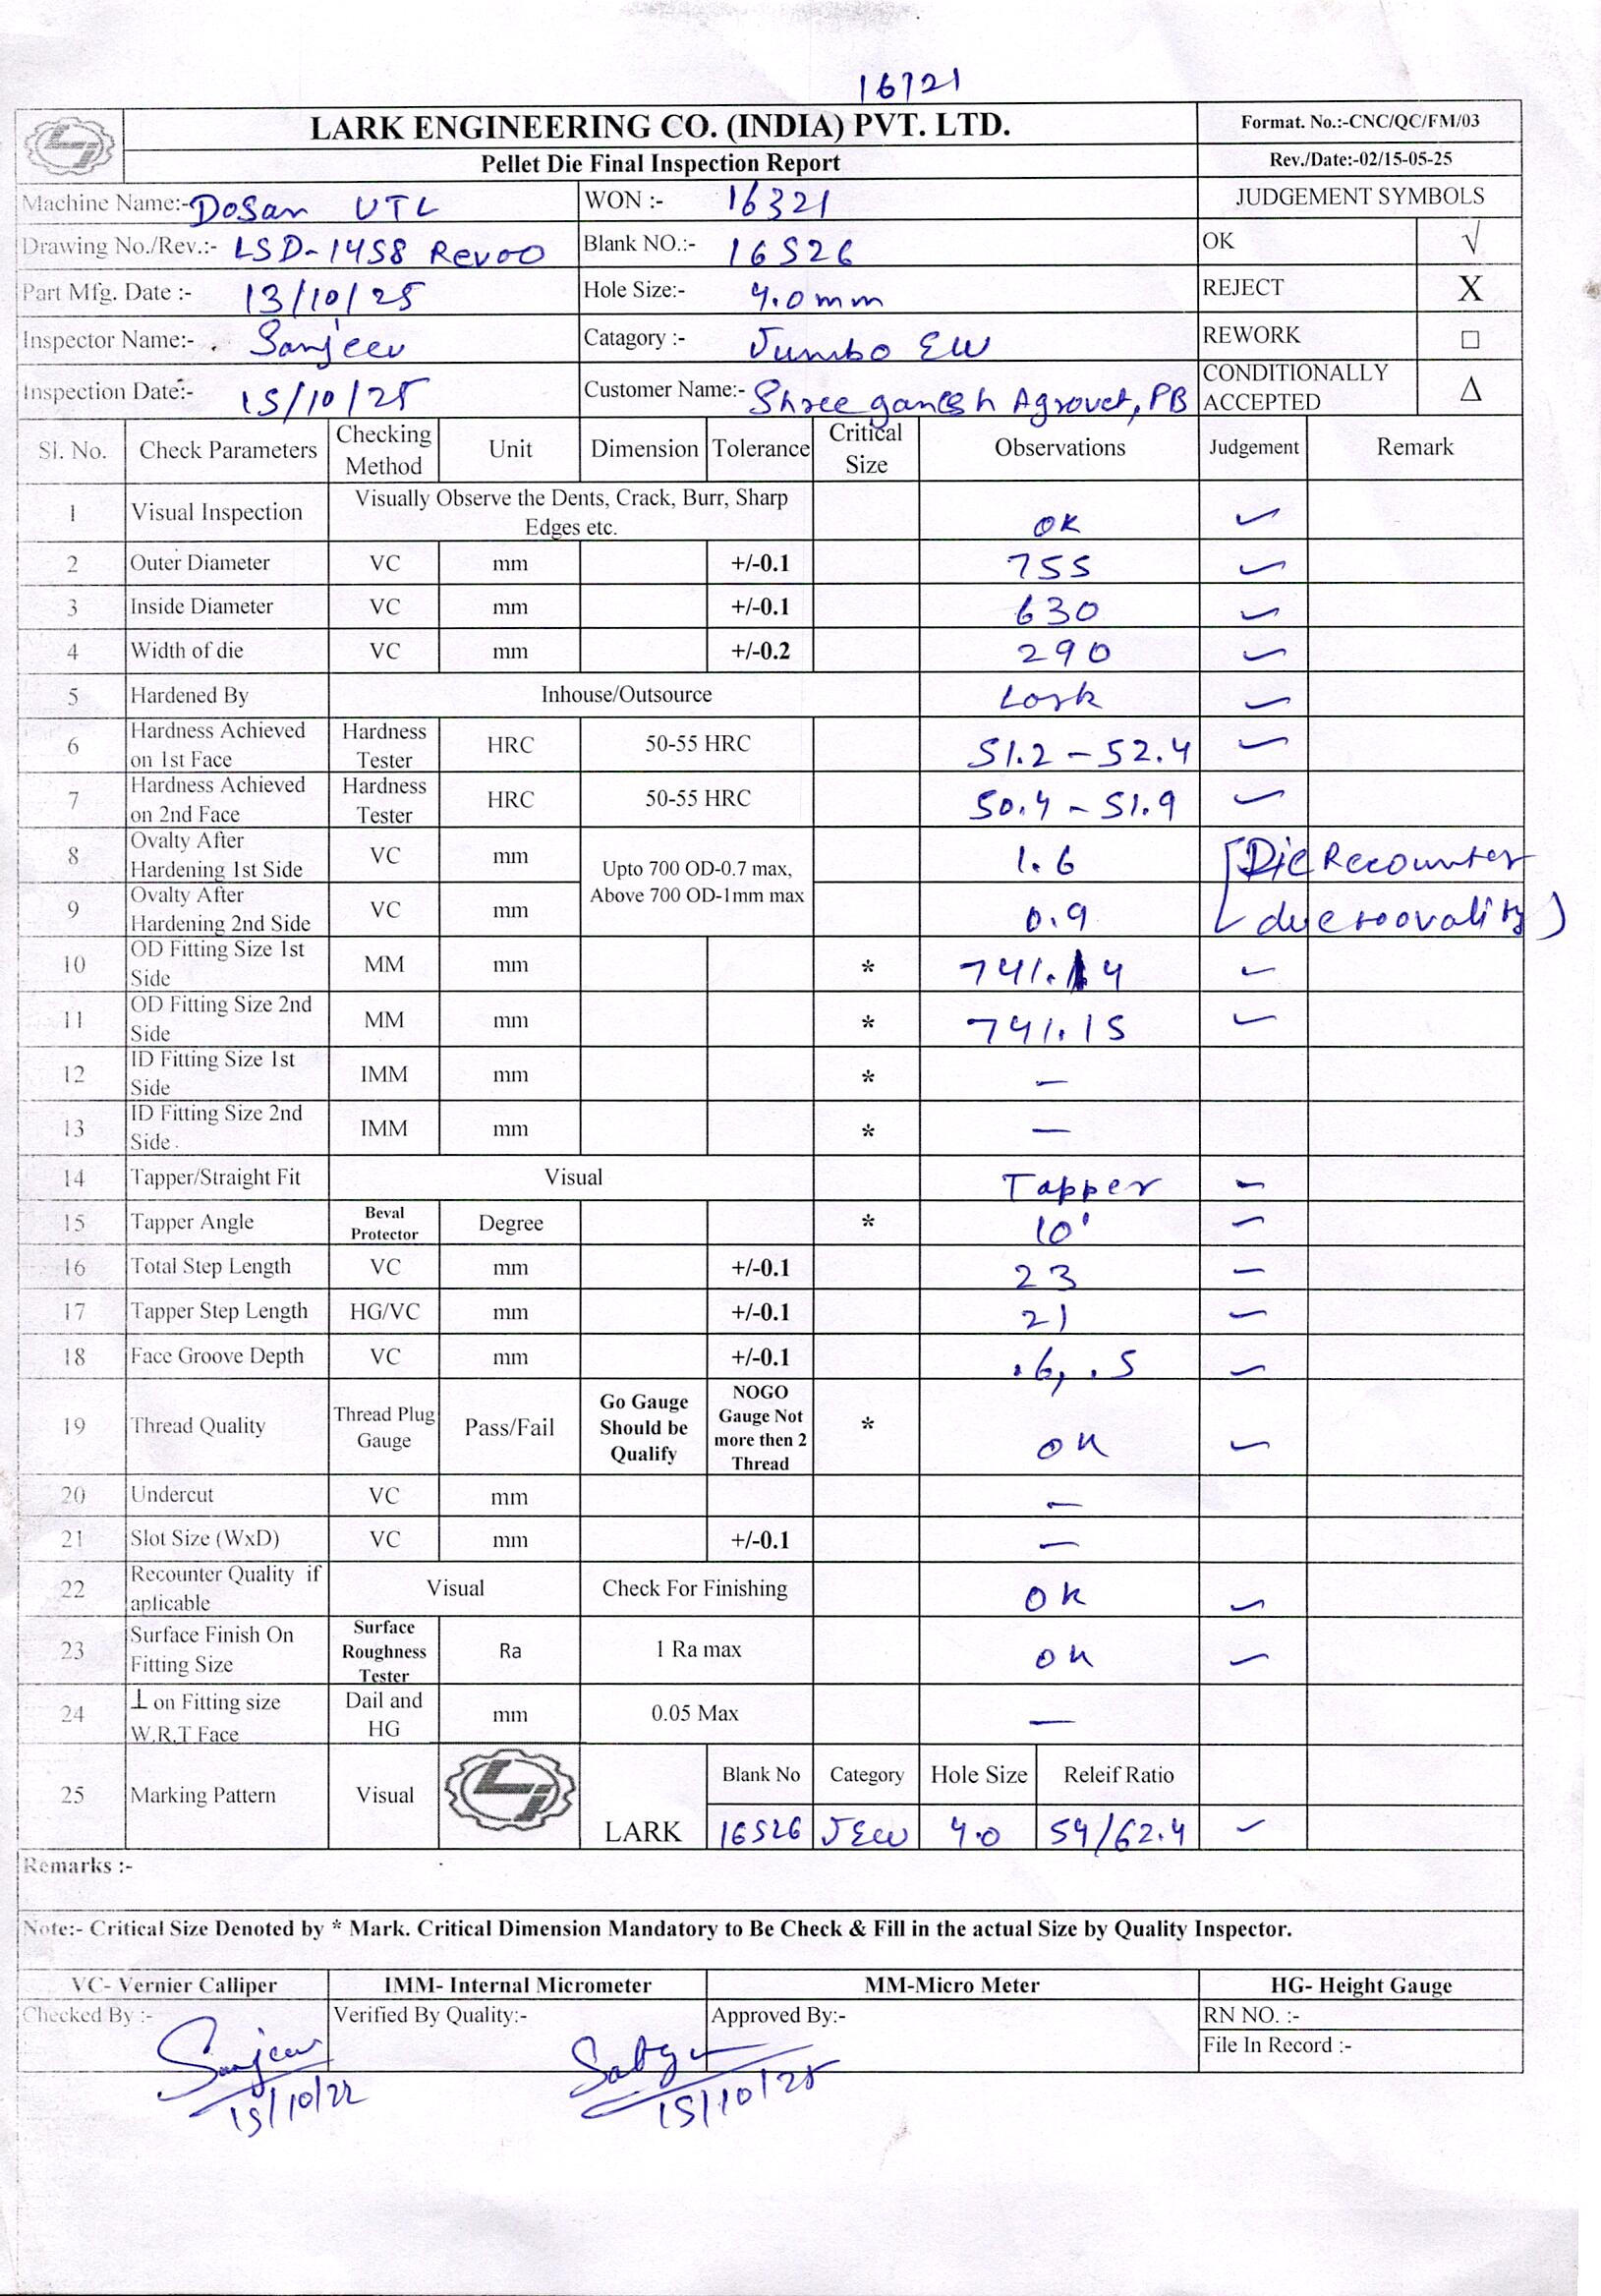 16721
LARK ENGINEERING CO. (INDIA) PVT. LTD.
Format. No.:-CNC/QC/FM/03
Pellet Die Final Inspection Report
Rev./Date:-02/15-05-25
Machine Name:- Dosan VTL WON :- 16321 JUDGEMENT SYMBOLS
Drawing No./Rev.:- LSD-1458 Rev00 Blank NO.:- 16526 OK √
Part Mfg. Date :- 13/10/25 Hole Size:- 4.0mm REJECT X
Inspector Name:- Sanjeev Catagory :- Jumbo EW REWORK □
Inspection Date:- 15/10/25 Customer Name:- Shree ganesh Agrovet, PB CONDITIONALLY ACCEPTED Δ
Sl. No. Check Parameters Checking Method Unit Dimension Tolerance Critical Size Observations Judgement Remark
1 Visual Inspection Visually Observe the Dents, Crack, Burr, Sharp Edges etc. OK ✓
2 Outer Diameter VC mm +/-0.1 755 ✓
3 Inside Diameter VC mm +/-0.1 630 ✓
4 Width of die VC mm +/-0.2 290 ✓
5 Hardened By Inhouse/Outsource Lark ✓
6 Hardness Achieved on 1st Face Hardness Tester HRC 50-55 HRC 51.2 - 52.4 ✓
7 Hardness Achieved on 2nd Face Hardness Tester HRC 50-55 HRC 50.4 - 51.9 ✓
8 Ovalty After Hardening 1st Side VC mm Upto 700 OD-0.7 max, Above 700 OD-1mm max 1.6 [Die Recounter
9 Ovalty After Hardening 2nd Side VC mm 0.9 due to ovality)
10 OD Fitting Size 1st Side MM mm * 741.14 ✓
11 OD Fitting Size 2nd Side MM mm * 741.15 ✓
12 ID Fitting Size 1st Side IMM mm * —
13 ID Fitting Size 2nd Side . IMM mm * —
14 Tapper/Straight Fit Visual Tapper ✓
15 Tapper Angle Beval Protector Degree * 10' ✓
16 Total Step Length VC mm +/-0.1 23 ✓
17 Tapper Step Length HG/VC mm +/-0.1 21 ✓
18 Face Groove Depth VC mm +/-0.1 .6, .5 ✓
19 Thread Quality Thread Plug Gauge Pass/Fail Go Gauge Should be Qualify NOGO Gauge Not more then 2 Thread * OK ✓
20 Undercut VC mm —
21 Slot Size (WxD) VC mm +/-0.1 —
22 Recounter Quality if aplicable Visual Check For Finishing OK ✓
23 Surface Finish On Fitting Size Surface Roughness Tester Ra 1 Ra max OK ✓
24 ⊥ on Fitting size W.R.T Face Dail and HG mm 0.05 Max —
25 Marking Pattern Visual LARK Blank No Category Hole Size Releif Ratio
16526 JEW 4.0 54/62.4 ✓
Remarks :-
Note:- Critical Size Denoted by * Mark. Critical Dimension Mandatory to Be Check & Fill in the actual Size by Quality Inspector.
VC- Vernier Calliper IMM- Internal Micrometer MM-Micro Meter HG- Height Gauge
Checked By :- Verified By Quality:- Approved By:- RN NO. :-
File In Record :-
Sanjeev
15/10/22 15/10/25